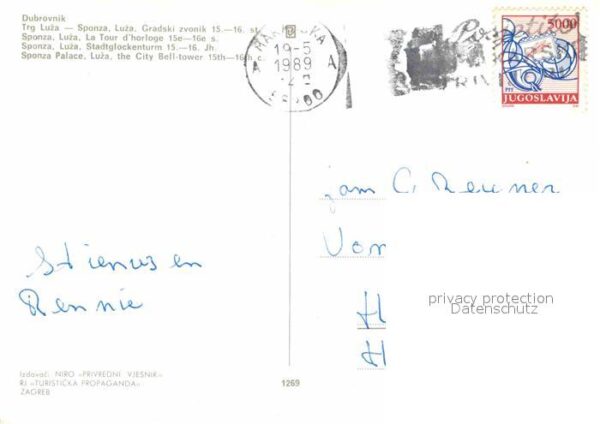 Dubrovnik
Trg Luža — Sponza, Luža, Gradski zvonik 15.—16. st.
Sponza, Luža, La Tour d'horloge 15e—16e s.
Sponza, Luža, Stadtglockenturm 15.—16. Jh.
Sponza Palace, Luža, the City Bell-tower 15th—16th c.
19-5
1989
A
5000
PTT
JUGOSLAVIJA
Stienus en
Rennie
Von
H
H
privacy protection
Datenschutz
Izdavači: NIRO «PRIVREDNI VJESNIK»
RJ «TURISTIČKA PROPAGANDA»
ZAGREB
1269